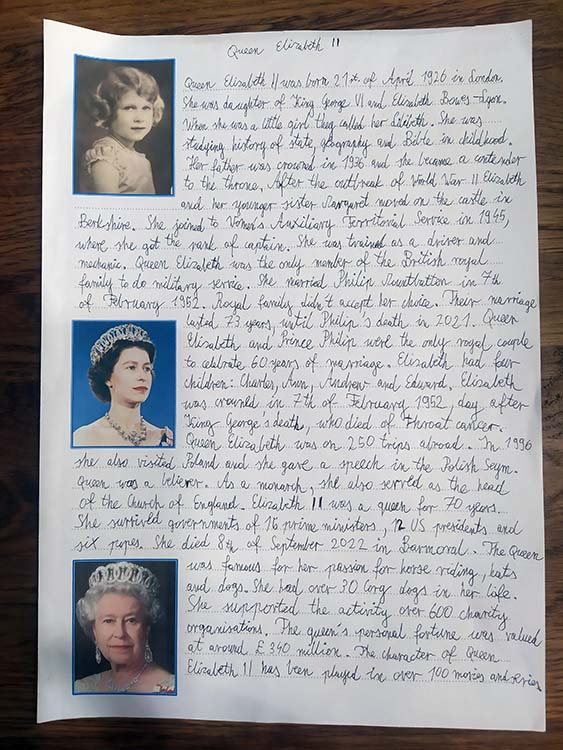 Queen Elizabeth II
Queen Elizabeth II was born 21st of April 1926 in London.
She was daughter of King George VI and Elizabeth Bowes-Lyon.
When she was a little girl they called her Lilibeth. She was
studying history of state, geography and Bible in childhood.
Her father was crowned in 1936 and she became a contender
to the throne. After the outbreak of World War II Elizabeth
and her younger sister Margaret moved on the castle in
Berkshire. She joined to Women's Auxiliary Territorial Service in 1945,
where she got the rank of captain. She was trained as a driver and
mechanic. Queen Elizabeth was the only member of the British royal
family to do military service. She married Philip in 7th
of February 1952. Royal family didn't accept her choice. Their marriage
lasted 73 years, until Philip's death in 2021. Queen
Elizabeth and Prince Philip were the only royal couple
to celebrate 60 years of marriage. Elizabeth had four
children: Charles, Ann, Andrew and Edward. Elizabeth
was crowned in 7th of February 1952, day after
King George's death, who died of throat cancer.
Queen Elizabeth was on 250 trips abroad. In 1996
she also visited Poland and she gave a speech in the Polish Seym.
Queen was a believer. As a monarch, she also served as the head
of the Church of England. Elizabeth II was a queen for 70 years.
She survived governments of 16 prime ministers, 12 US presidents and
six popes. She died 8th of September 2022 in Barmoral. The Queen
was famous for her passion for horse riding, hats
and dogs. She had over 30 Corgi dogs in her life.
She supported the activity over 600 charity
organisations. The queen's personal fortune was valued
at around £ 340 million. The character of Queen
Elizabeth II has been played in over 100 movies and series.